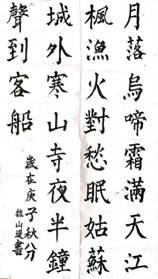 月落烏啼霜滿天江
楓漁火對愁眠姑蘇
城外寒山寺夜半鐘
聲到客船
歲在庚子秋分
山書